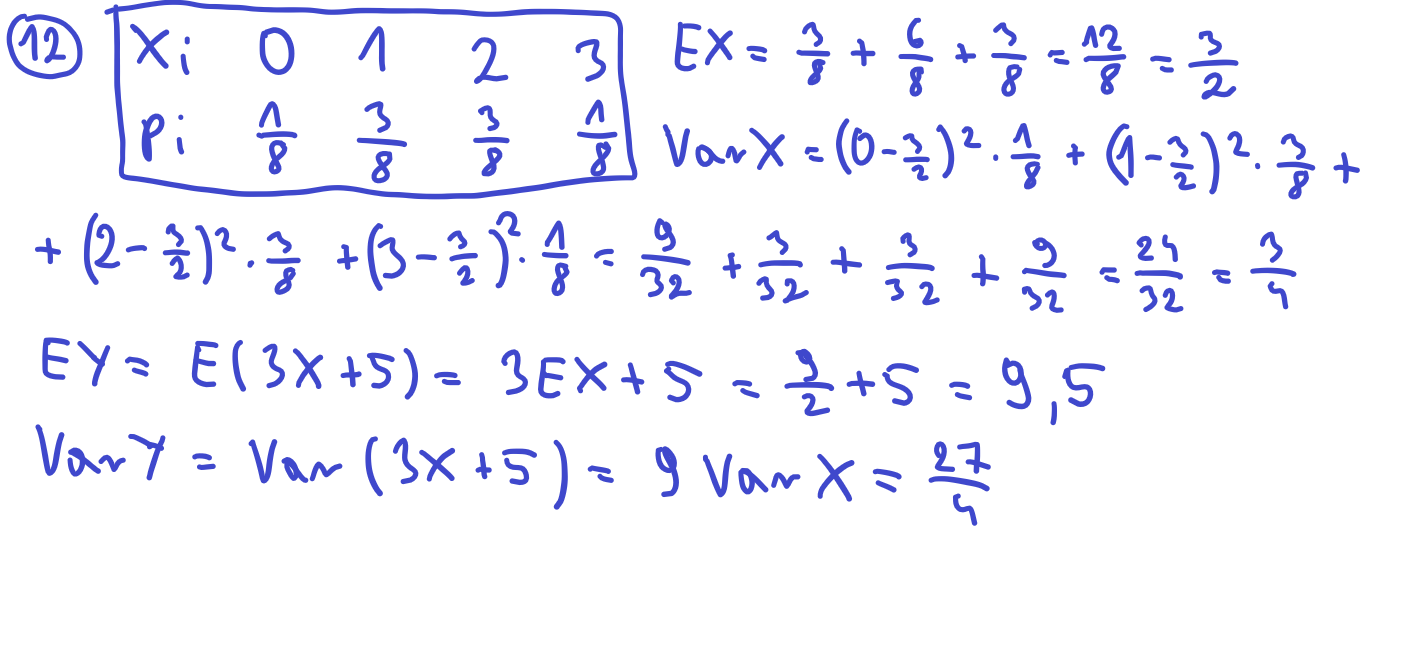 12 Xi 0 1 2 3 EX = 3/8 + 6/8 + 3/8 = 12/8 = 3/2
pi 1/8 3/8 3/8 1/8 Var X = (0 - 3/2)² · 1/8 + (1 - 3/2)² · 3/8 +
+ (2 - 3/2)² · 3/8 + (3 - 3/2)² · 1/8 = 9/32 + 3/32 + 3/32 + 9/32 = 24/32 = 3/4
EY = E(3X+5) = 3EX + 5 = 9/2 + 5 = 9,5
Var Y = Var (3X+5) = 9 Var X = 27/4